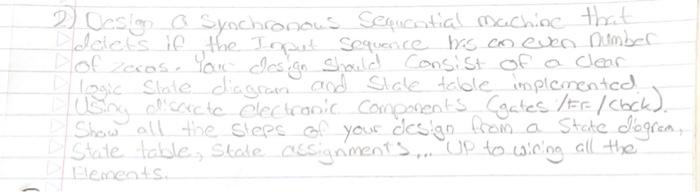 2) Design a Synchronous Sequential machine that
detets if the Input sequence has an even number
of zeros. Your design should Consist of a clear
logic State diagram and State table implemented
Using discrete electronic Components (gates/FF/Clock).
Show all the steps of your design from a State diagram,
State table, State assignments,.. UP to wiring all the
Elements.